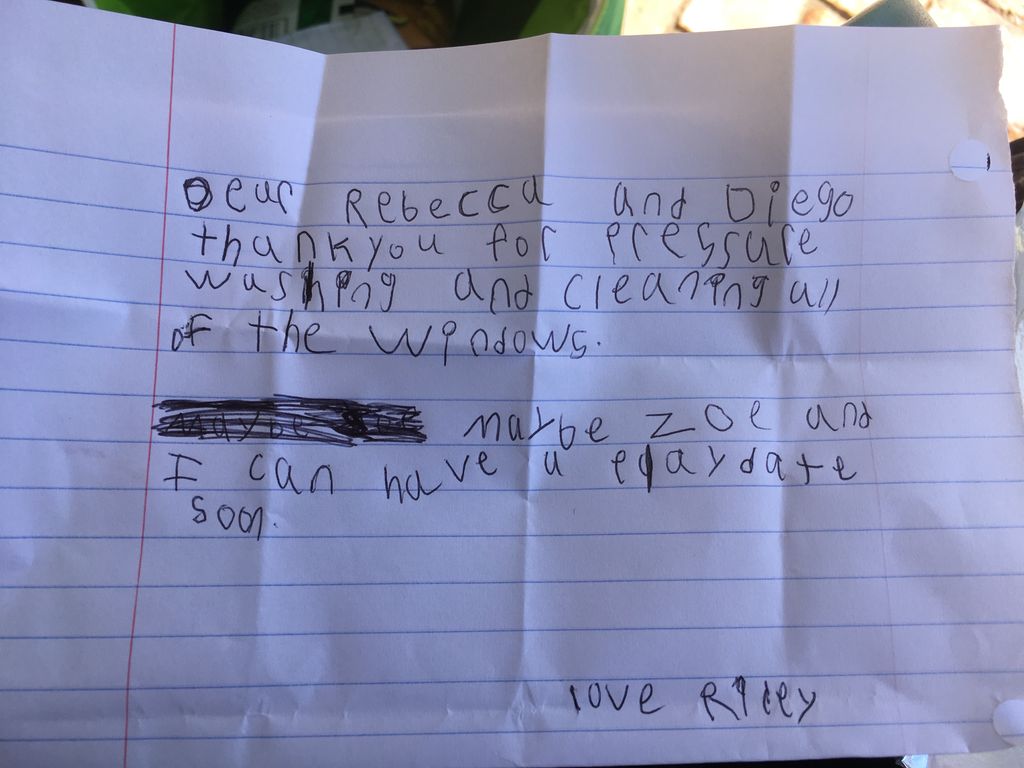 Dear Rebecca and Diego
thankyou for pressure
washing and cleaning all
of the windows.
maybe maybe Zoe and
I can have a playdate
soon.
love Riley